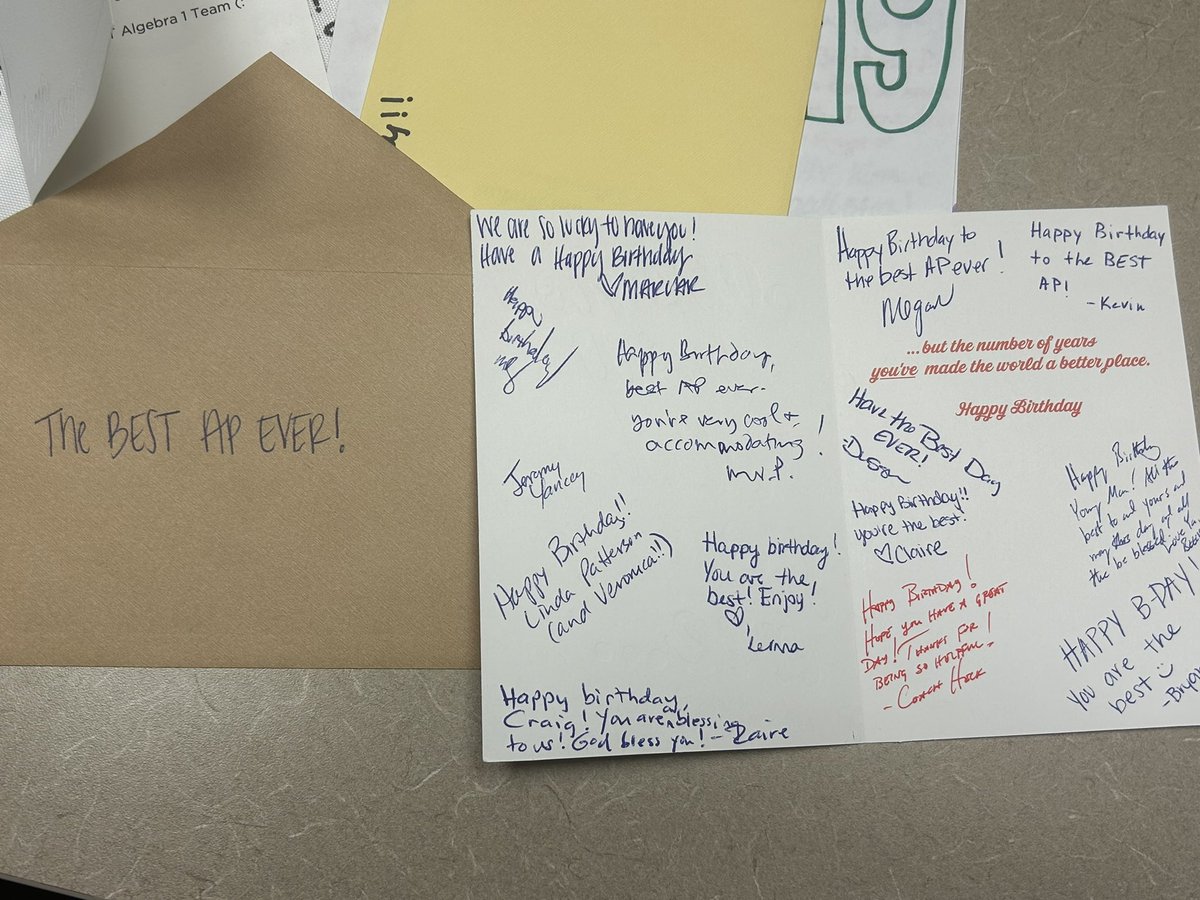 Algebra 1 Team (:
19
THE BEST AP EVER!
We are so lucky to have you!
Have a Happy Birthday
Happy
birthday
Happy Birthday,
best AP ever.
you're very cool +
accommodating!
M.V.P.
Jeremy
Yancey
Happy Birthday!!
Linda Patterson
(and Veronica!!)
Happy birthday!
You are the
best! Enjoy!
Happy birthday,
Craig! You are a blessing
to us! God bless you! - Zaire
Happy Birthday to
the best AP ever!
Megan
Happy Birthday
to the BEST
AP!
- Kevin
...but the number of years
you've made the world a better place.
Happy Birthday
Have the Best Day
EVER!
Happy Birthday!!
you're the best.
♡Claire
Happy Birthday
Young Man! All the
best to and yours and
may this day and all
the be blessed! Love Ya
HAPPY BIRTHDAY!
HOPE YOU HAVE A GREAT
DAY! THANKS FOR
BEING SO HELPFUL!
- COACH HUCK
HAPPY B-DAY!
You are the
best ☺
-Brian